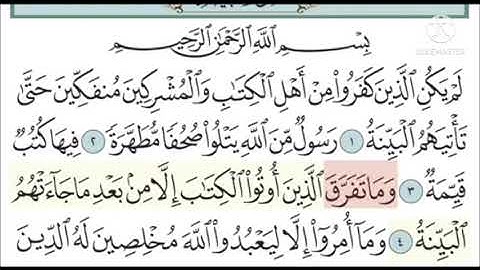 بِسْمِ ٱللَّهِ ٱلرَّحْمَٰنِ ٱلرَّحِيمِ
لَمْ يَكُنِ ٱلَّذِينَ كَفَرُوا۟ مِنْ أَهْلِ ٱلْكِتَٰبِ وَٱلْمُشْرِكِينَ مُنفَكِّينَ حَتَّىٰ
تَأْتِيَهُمُ ٱلْبَيِّنَةُ ١ رَسُولٌ مِّنَ ٱللَّهِ يَتْلُوا۟ صُحُفًا مُّطَهَّرَةً ٢ فِيهَا كُتُبٌ
قَيِّمَةٌ ٣ وَمَا تَفَرَّقَ ٱلَّذِينَ أُوتُوا۟ ٱلْكِتَٰبَ إِلَّا مِنۢ بَعْدِ مَا جَآءَتْهُمُ
ٱلْبَيِّنَةُ ٤ وَمَآ أُمِرُوٓا۟ إِلَّا لِيَعْبُدُوا۟ ٱللَّهَ مُخْلِصِينَ لَهُ ٱلدِّينَ